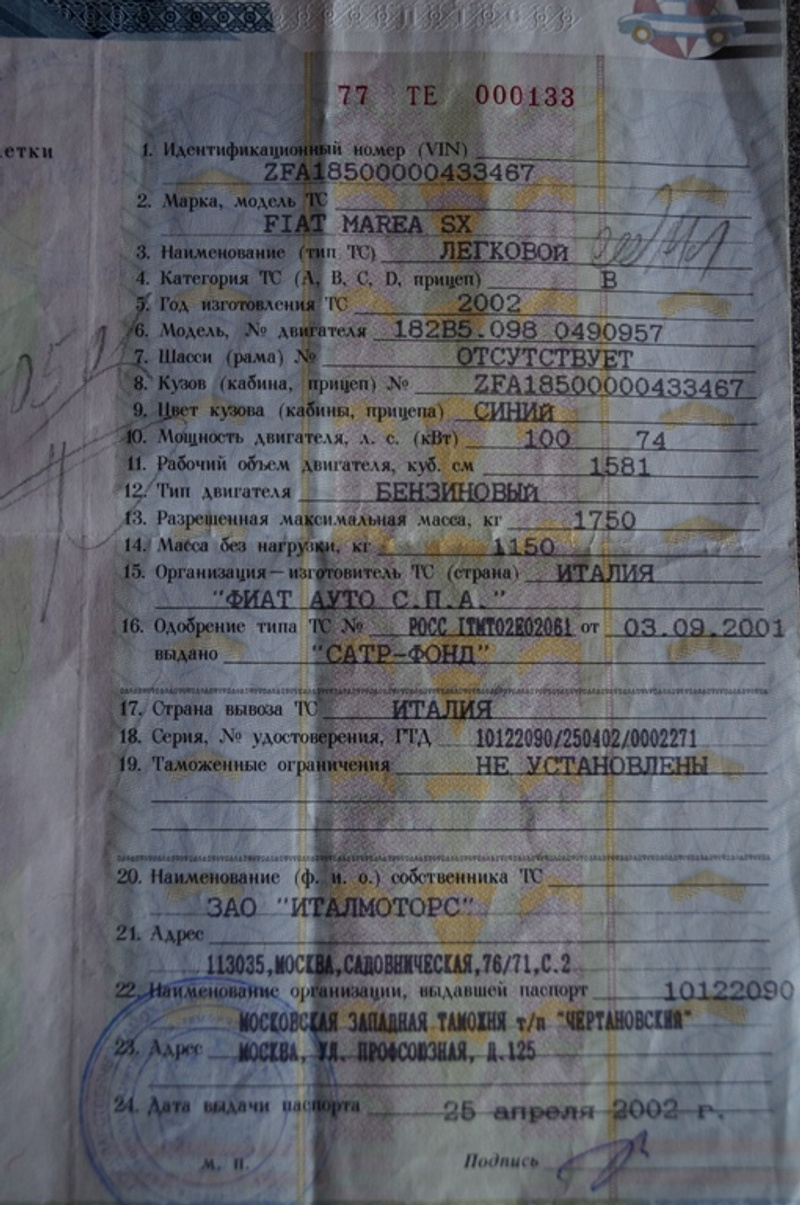 77 ТЕ 000133
етки
1. Идентификационный номер (VIN)
ZFA18500000433467
2. Марка, модель ТС
FIAT MAREA SX
3. Наименование (тип ТС) ЛЕГКОВОЙ
4. Категория ТС (А, В, С, D, прицеп) В
5. Год изготовления ТС 2002
6. Модель, № двигателя 182B5.098 0490957
7. Шасси (рама) № ОТСУТСТВУЕТ
8. Кузов (кабина, прицеп) № ZFA18500000433467
9. Цвет кузова (кабины, прицепа) СИНИЙ
10. Мощность двигателя, л. с. (кВт) 100 74
11. Рабочий объем двигателя, куб. см 1581
12. Тип двигателя БЕНЗИНОВЫЙ
13. Разрешенная максимальная масса, кг 1750
14. Масса без нагрузки, кг 1150
15. Организация—изготовитель ТС (страна) ИТАЛИЯ
"ФИАТ АУТО С.П.А."
16. Одобрение типа ТС № РОСС ITMT02E02061 от 03.09.2001
выдано "САТР-ФОНД"
17. Страна вывоза ТС ИТАЛИЯ
18. Серия, № удостоверения, ГТД 10122090/250402/0002271
19. Таможенные ограничения НЕ УСТАНОВЛЕНЫ
20. Наименование (ф. и. о.) собственника ТС
ЗАО "ИТАЛМОТОРС"
21. Адрес
113035,МОСКВА,САДОВНИЧЕСКАЯ,76/71,С.2
22. Наименование организации, выдавшей паспорт 10122090
МОСКОВСКАЯ ЗАПАДНАЯ ТАМОЖНЯ т/п "ЧЕРТАНОВСКИЙ"
23. Адрес МОСКВА, УЛ. ПРОФСОЮЗНАЯ, Д.125
24. Дата выдачи паспорта 25 апреля 2002 г.
М. П. Подпись